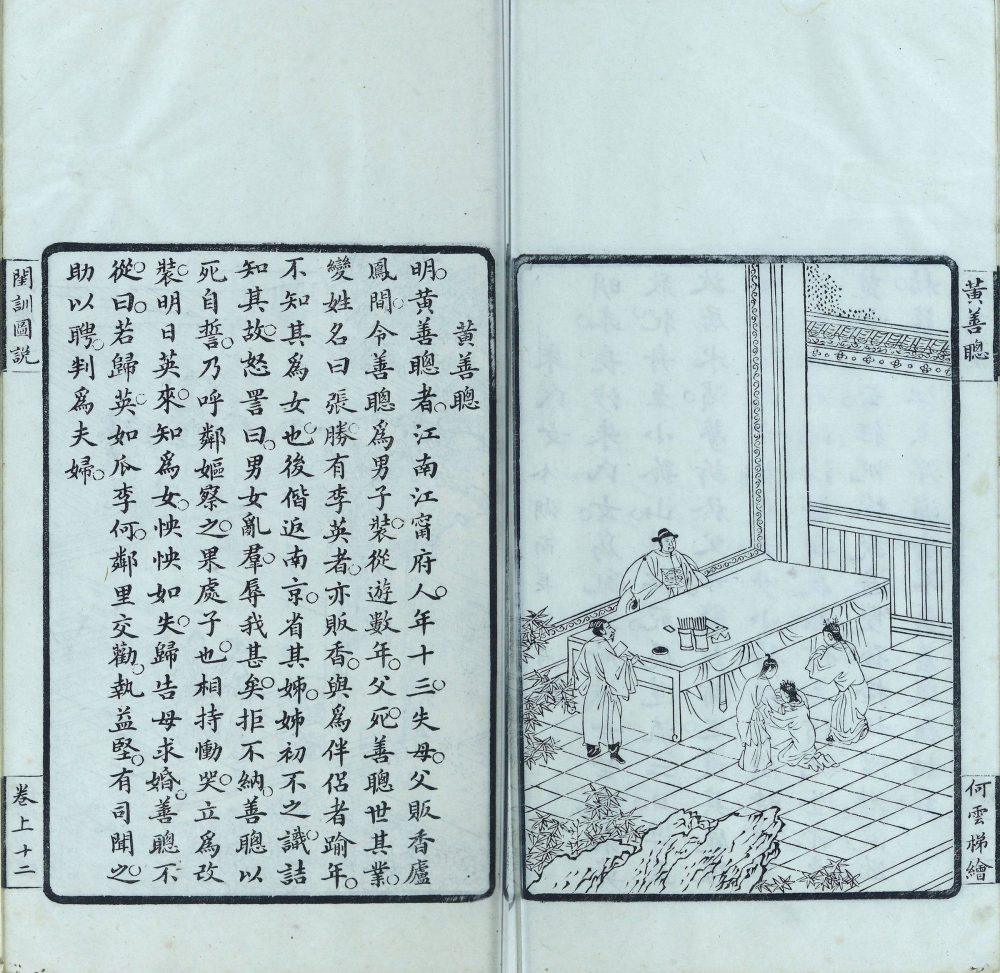 黃善聰
何雲梯繪
黃善聰
明黃善聰者江南江甯府人年十三失母父販香廬
鳳閒令善聰為男子裝從遊數年父死善聰世其業
變姓名曰張勝有李英者亦販香與為伴侶者踰年
不知其為女也後偕返南京省其姊姊初不之識詰
知其故怒詈曰男女亂羣辱我甚矣拒不納善聰以
死自誓乃呼鄰嫗察之果處子也相持慟哭立為改
裝明日英來知為女怏怏如失歸告母求婚善聰不
從曰若歸英如瓜李何鄰里交勸執益堅有司聞之
助以聘判為夫婦
閨訓圖說
卷上十二